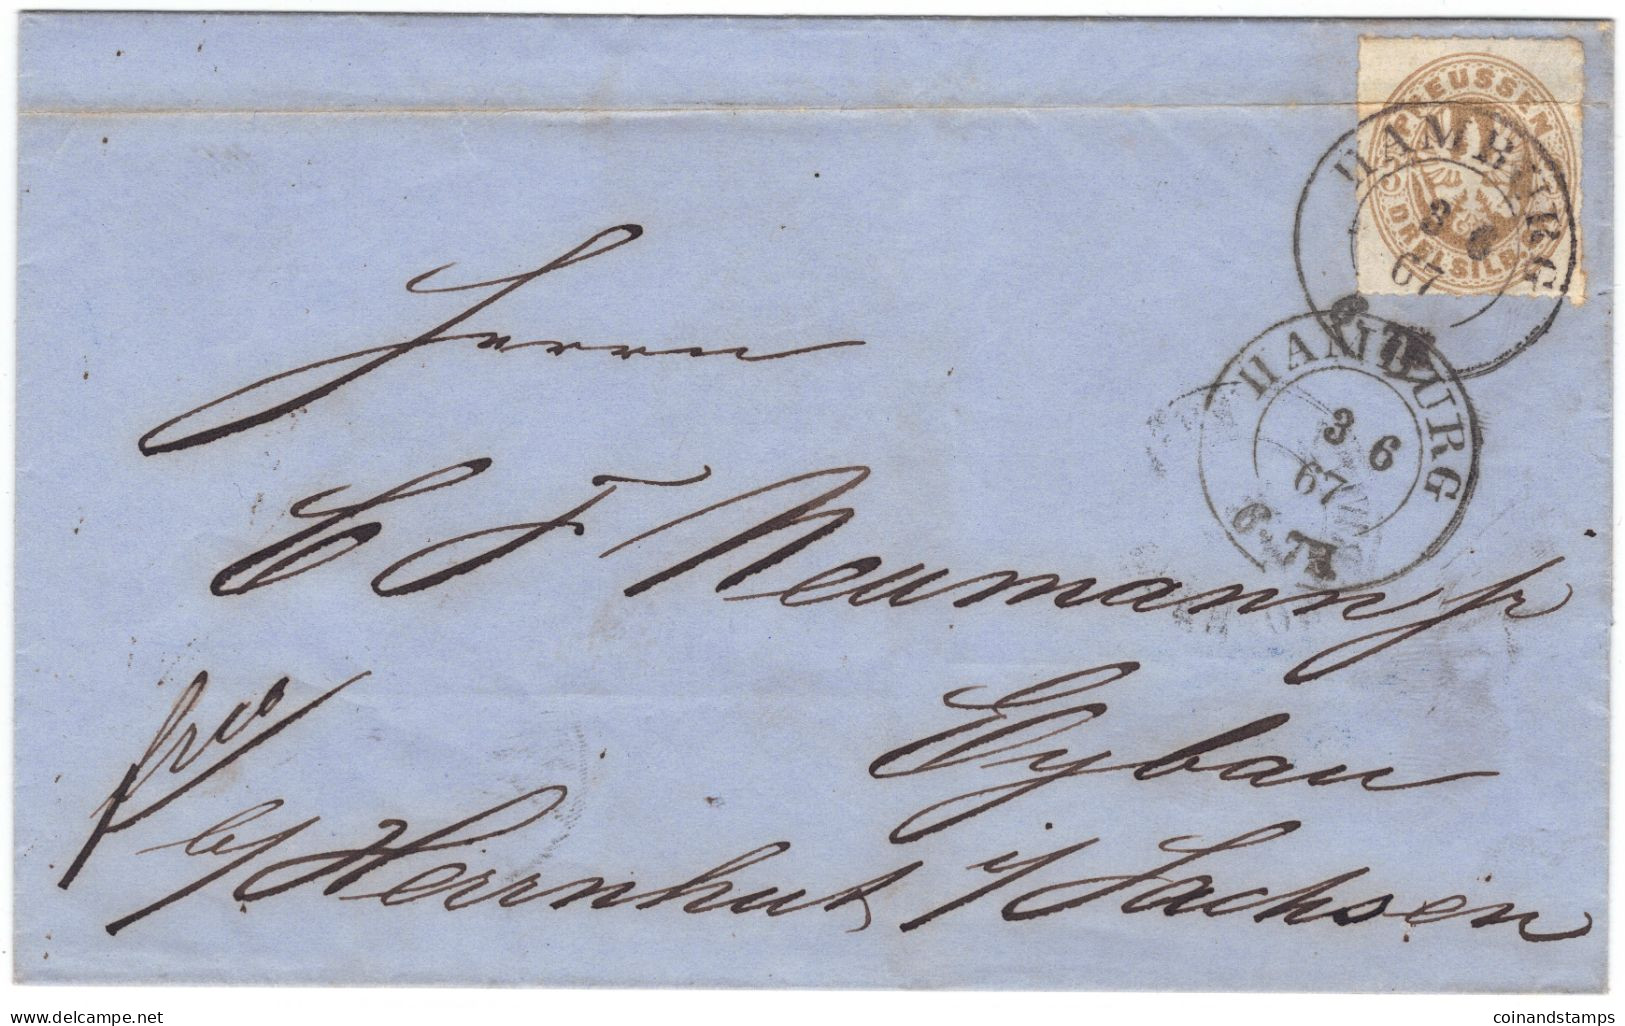 PREUSSEN
3 DREI SILB. 
HAMBURG
3 6
67
HAMBURG
3 6
67
6-7 N
Herrn
C F Neumann jr
Eybau
frco
b/ Herrnhut i/ Sachsen
Delcampe.net
coinandstamps